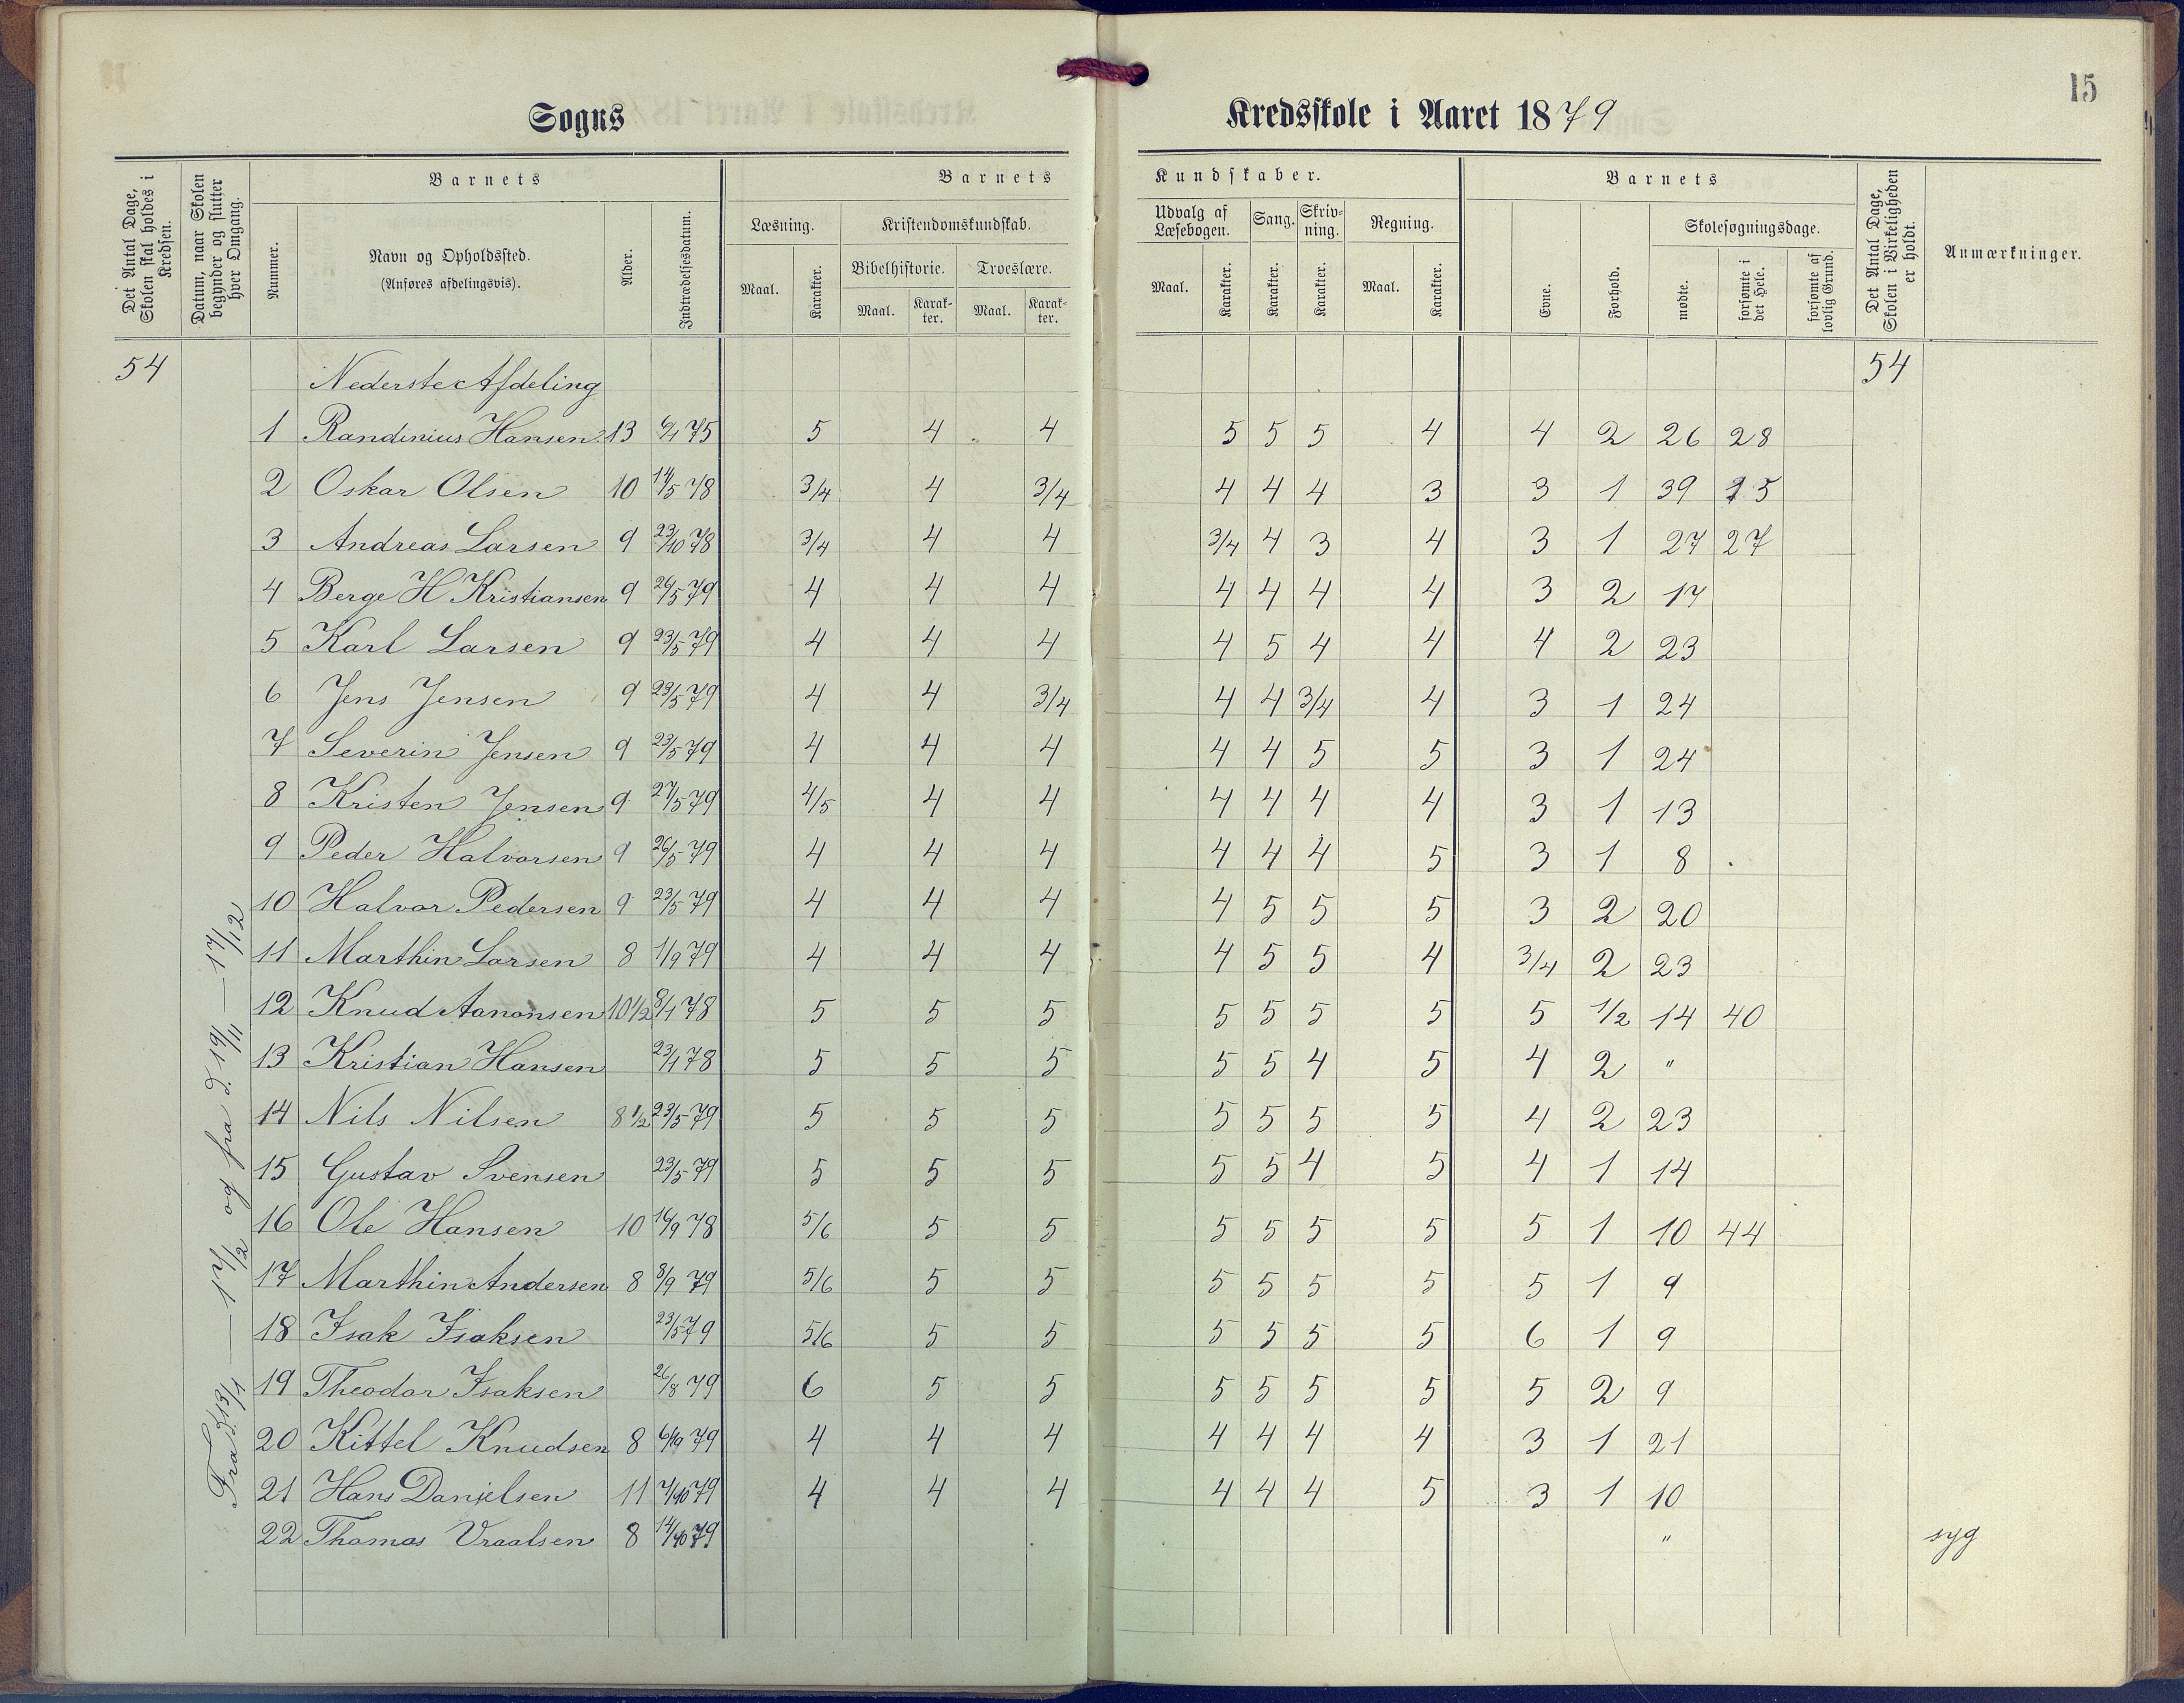 15
Sogns Kredsskole i Aaret 1879
Det Antal Dage, Skolen skal holdes i Kredsen.
Datum, naar Skolen begynder og slutter hver Omgang.
Barnets
Nummer.
Navn og Opholdssted.
(Anføres afdelingsvis).
Alder.
Indtrædelsesdatum.
Barnets Kundskaber.
Læsning.
Maal. Karakter.
Kristendomskundskab.
Bibelhistorie. Troeslære.
Maal. Karakter. Maal. Karakter.
Udvalg af Læsebogen.
Maal. Karakter.
Sang. Karakter.
Skrivning. Karakter.
Regning.
Maal. Karakter.
Barnets
Evne. Forhold.
Skolesøgningsdage.
mødte. forsømte i det Hele. forsømte af lovlig Grund.
Det Antal Dage, Skolen i Virkeligheden er holdt.
Anmærkninger.
54 Nederste Afdeling 54
Fra d. 13/1 — 17/2 og fra d. 19/11 — 17/12
1 Randinius Hansen 13 6/1 75 5 4 4 5 5 5 4 4 2 26 28
2 Oskar Olsen 10 14/5 78 3/4 4 3/4 4 4 4 3 3 1 39 15
3 Andreas Larsen 9 23/10 78 3/4 4 4 3/4 4 3 4 3 1 27 27
4 Berge H Kristiansen 9 26/5 79 4 4 4 4 4 4 4 3 2 17
5 Karl Larsen 9 23/5 79 4 4 4 4 5 4 4 4 2 23
6 Jens Jensen 9 23/5 79 4 4 3/4 4 4 3/4 4 3 1 24
7 Severin Jensen 9 23/5 79 4 4 4 4 4 5 5 3 1 24
8 Kristen Jensen 9 27/5 79 4/5 4 4 4 4 4 4 3 1 13
9 Peder Halvorsen 9 26/5 79 4 4 4 4 4 4 5 3 1 8
10 Halvor Pedersen 9 23/5 79 4 4 4 4 5 5 5 3 2 20
11 Marthin Larsen 8 1/9 79 4 4 4 4 5 5 4 3/4 2 23
12 Knud Aanonsen 10 1/2 8/1 78 5 5 5 5 5 5 5 5 1/2 14 40
13 Kristian Hansen 23/1 78 5 5 5 5 5 4 5 4 2 "
14 Nils Nilsen 8 1/2 23/5 79 5 5 5 5 5 5 5 4 2 23
15 Gustav Svensen 23/5 79 5 5 5 5 5 4 5 4 1 14
16 Ole Hansen 10 16/9 78 5/6 5 5 5 5 5 5 5 1 10 44
17 Marthin Andersen 8 8/9 79 5/6 5 5 5 5 5 5 5 1 9
18 Isak Isaksen 23/5 79 5/6 5 5 5 5 5 5 6 1 9
19 Theodor Isaksen 26/8 79 6 5 5 5 5 5 5 5 2 9
20 Kittel Knudsen 8 79 4 4 4 4 4 4 4 3 1 21
21 Hans Danielsen 11 7/10 79 4 4 4 4 4 4 5 3 1 10
22 Thomas Vraalsen 8 14/10 79 " syg